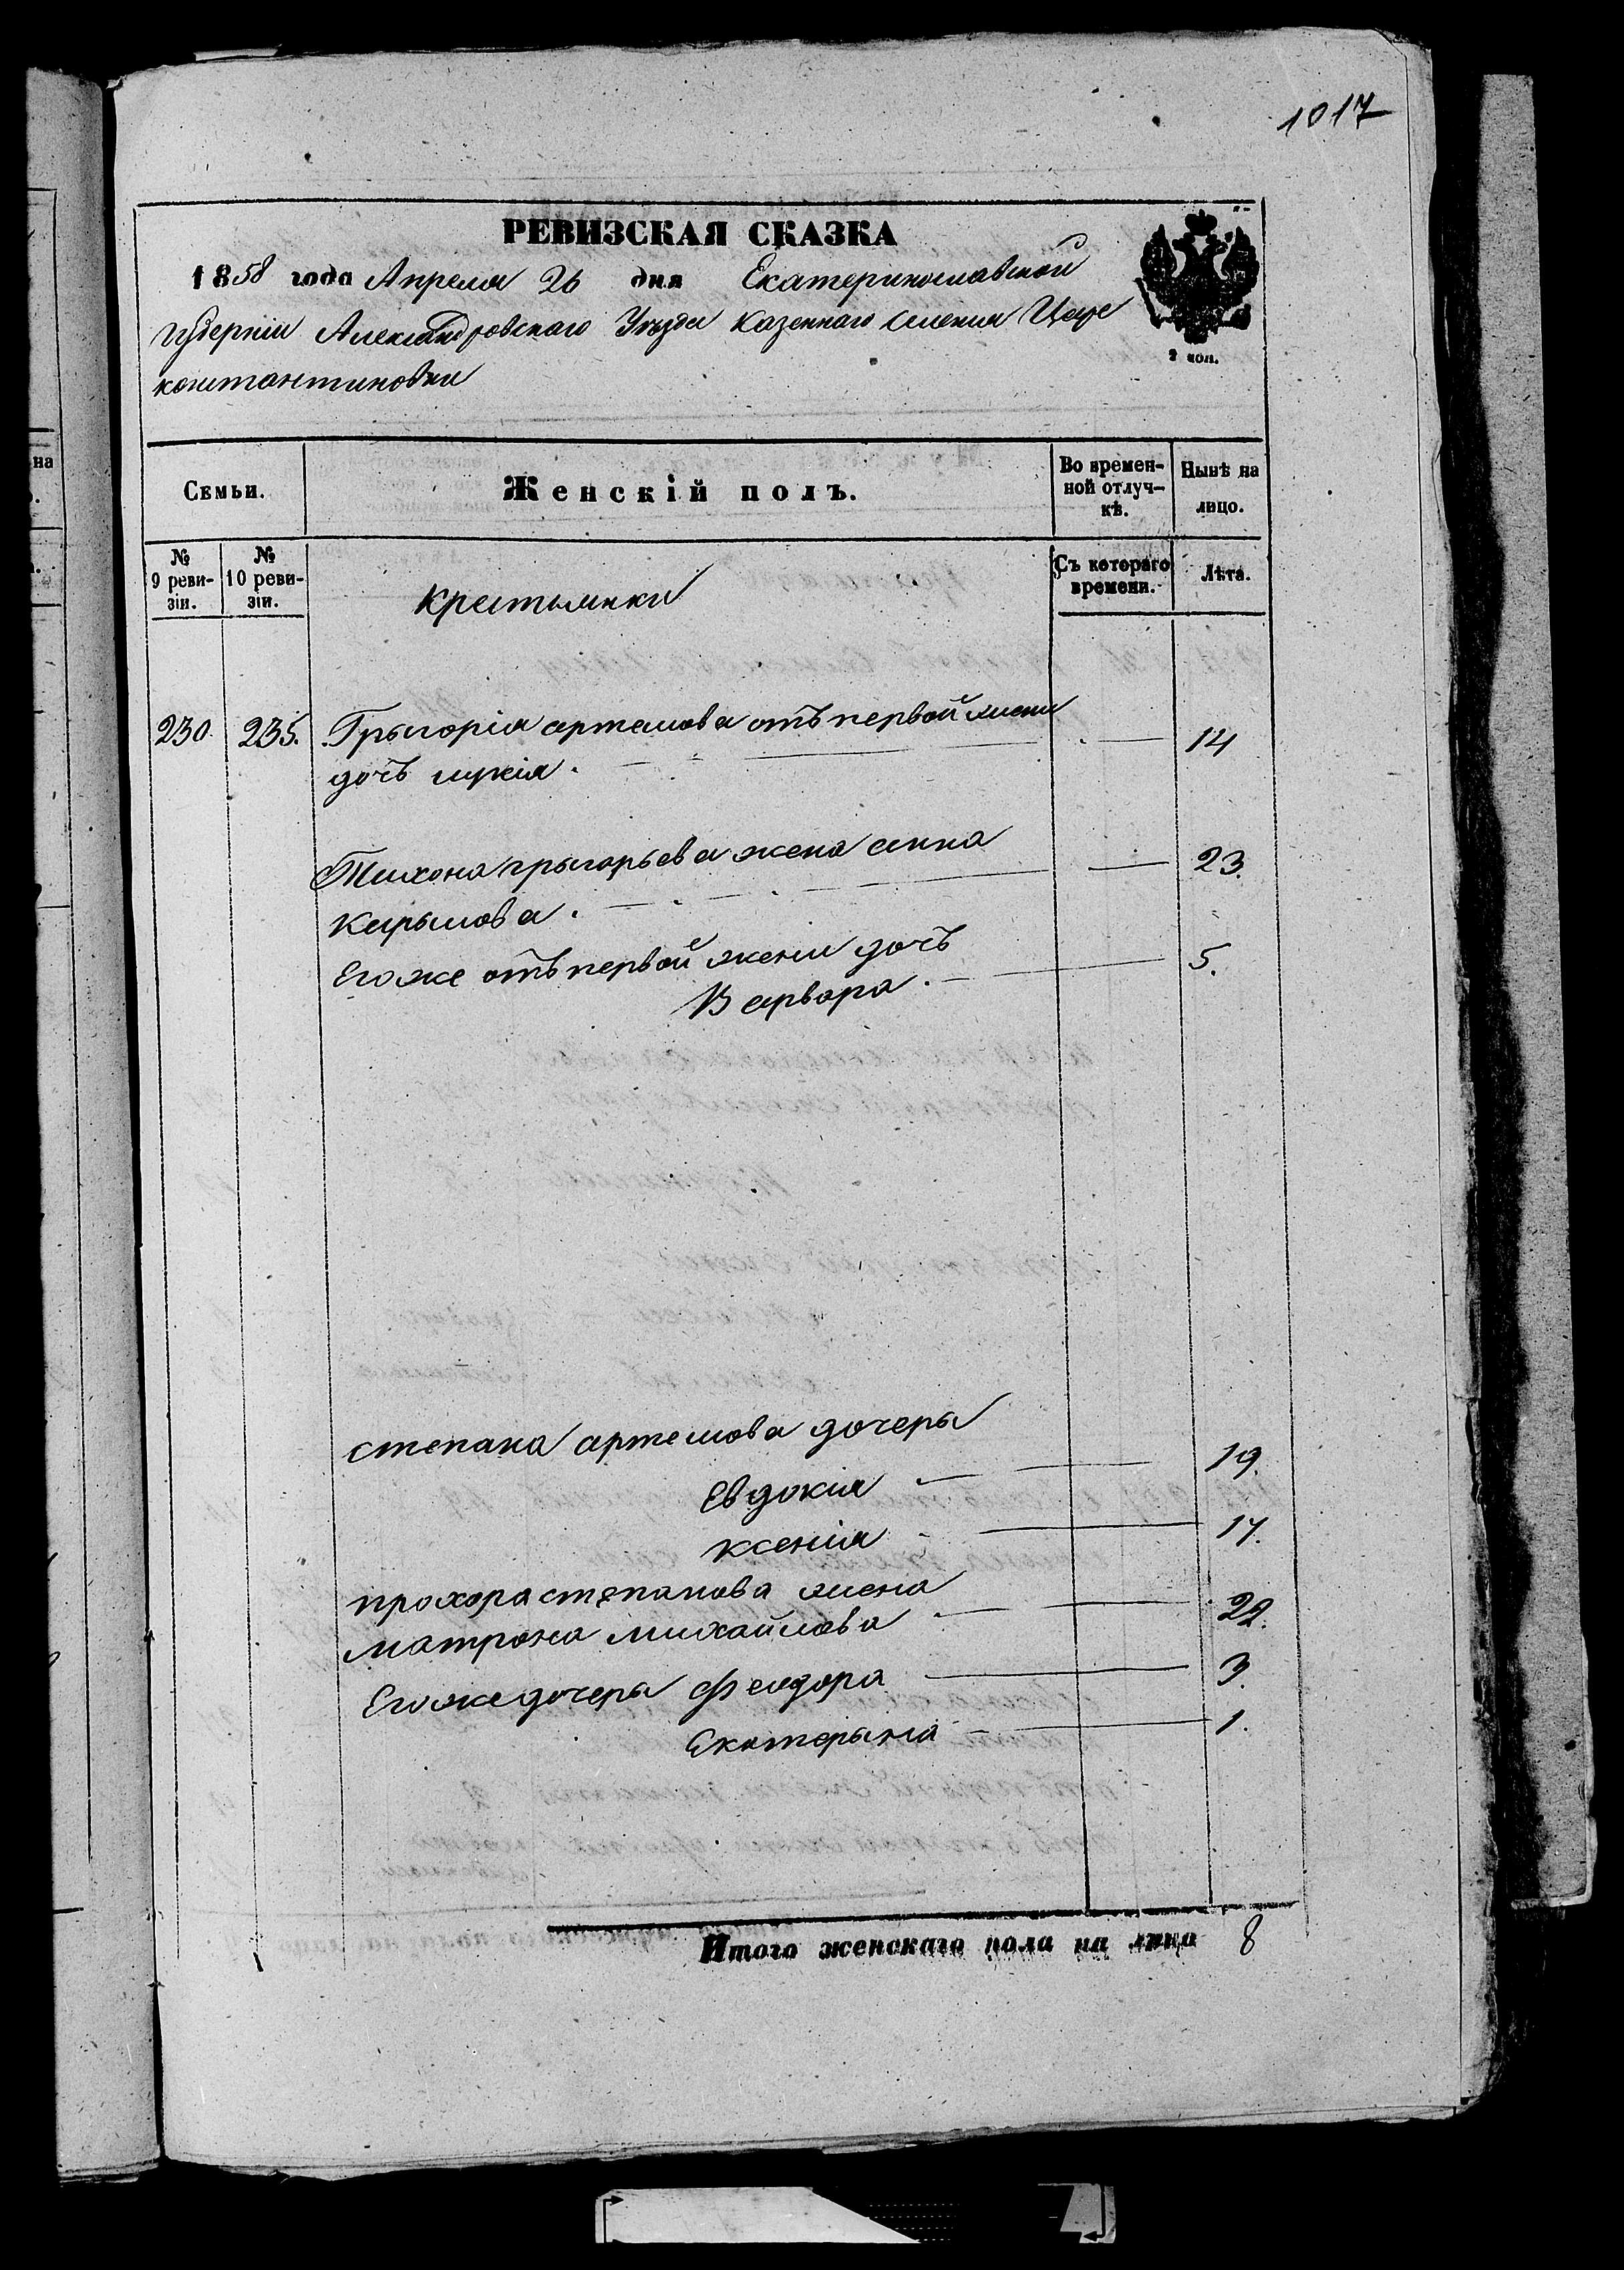 1017
РЕВИЗСКАЯ СКАЗКА
1858 года Апреля 26 дня Екатеринославской
Губерніи Александровскаго Уѣзда Казеннаго Селенія Царе
константиновки
2 коп.
Семьи.
Женскій полъ.
Во времен-
ной отлуч-
кѣ.
Нынѣ на
лицо.
№
9 реви-
зіи.
№
10 реви-
зіи.
крестьянки
Съ котораго
времени.
Лѣта.
230. 235. Грыгорія артемова отъ первой жены
дочь лукія. 14
Тихона грыгорьева жена анна 23.
карымова.
Его же отъ первой жены дочь 5.
Варвара.
степана артемова дочеры
Евдокия 19.
ксенія 17.
прохора степанова жена
матрона михайлова 22.
Его же дочеры феодора 3.
Екатерына 1.
Итого женскаго пола на лицо 8
на